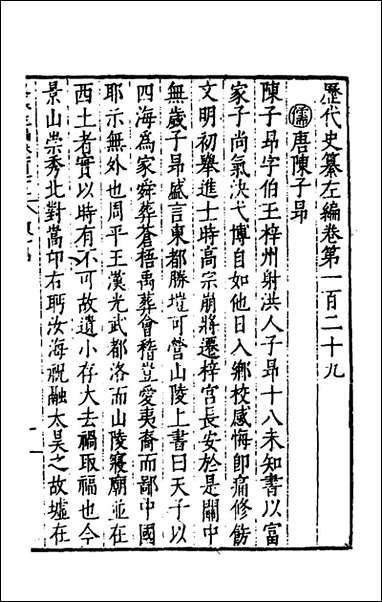 歷代史纂左編卷第一百二十九
儒唐陳子昂
陳子昂字伯王梓州射洪人子昂十八未知書以富
家子尚氣決弋博自如他日入鄉校感悔卽痛修飭
文明初舉進士時高宗崩將遷梓宮長安於是關中
無歲子昂盛言東都勝塏可營山陵上書曰天子以
四海為家舜葬蒼梧禹葬會稽豈愛夷裔而鄙中國
耶示無外也周平王漢光武都洛而山陵寢廟並在
西土者實以時有不可故遺小存大去禍取福也今
景山崇秀北對嵩邙右眄汝海祝融太昊之故墟在